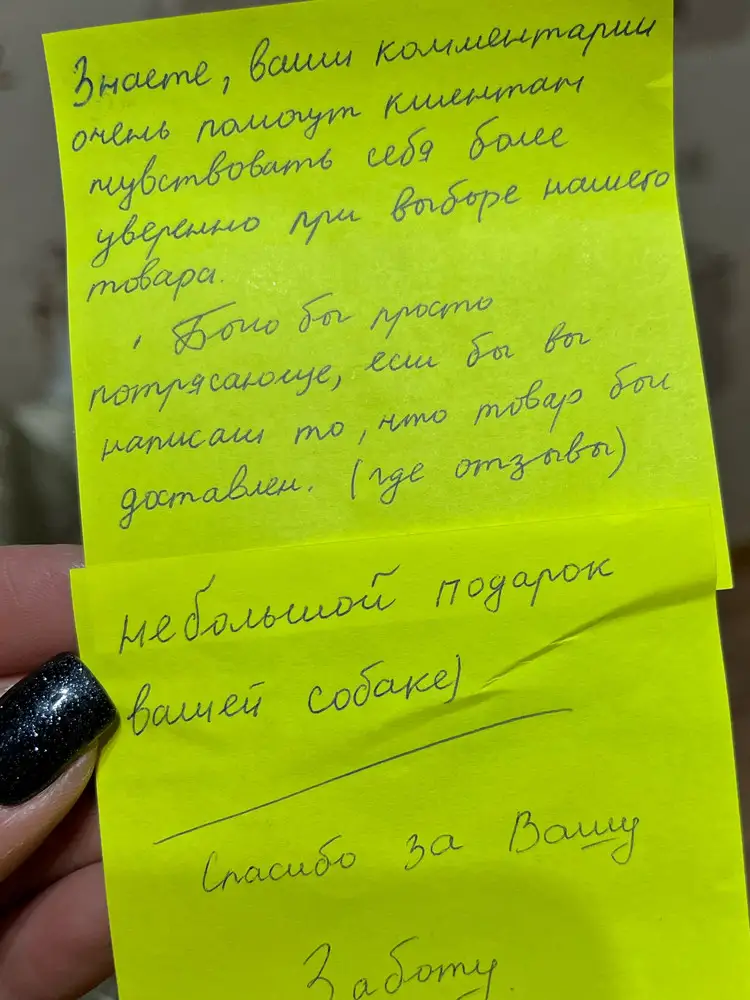 Знаете, ваши комментарии
очень помогут клиентам
чувствовать себя более
уверенно при выборе нашего
товара.
Было бы просто
потрясающе, если бы вы
написали то, что товар был
доставлен. (где отзывы)
небольшой подарок
вашей собаке)
Спасибо за Вашу
Заботу